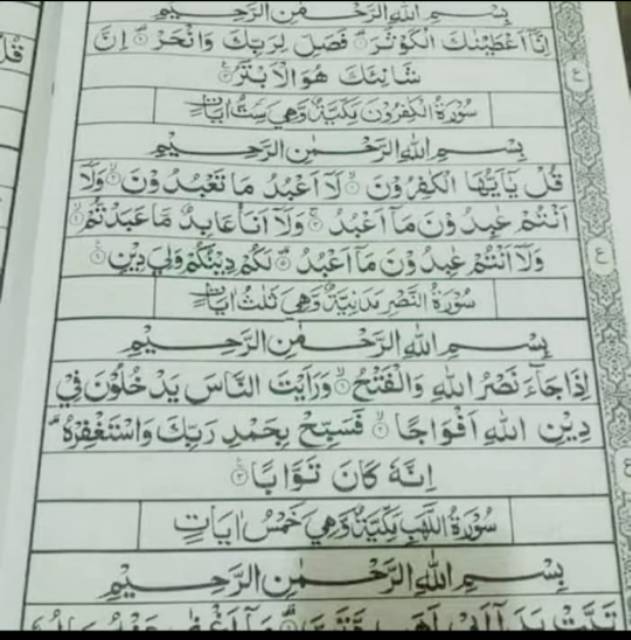 بِسْمِ اللهِ الرَّحْمٰنِ الرَّحِيْمِ
اِنَّآ اَعْطَيْنٰكَ الْكَوْثَرَ ۝۱ فَصَلِّ لِرَبِّكَ وَانْحَرْ ۝۲ اِنَّ
شَانِئَكَ هُوَ الْاَبْتَرُ ۝۳
سُوْرَةُ الْكٰفِرُوْنَ مَكِّيَّةٌ وَّهِيَ سِتُّ اٰيَاتٍ
بِسْمِ اللهِ الرَّحْمٰنِ الرَّحِيْمِ
قُلْ يٰٓاَيُّهَا الْكٰفِرُوْنَ ۝۱ لَآ اَعْبُدُ مَا تَعْبُدُوْنَ ۝۲ وَلَآ
اَنْتُمْ عٰبِدُوْنَ مَآ اَعْبُدُ ۝۳ وَلَآ اَنَا۠ عَابِدٌ مَّا عَبَدْتُّمْ ۝۴
وَلَآ اَنْتُمْ عٰبِدُوْنَ مَآ اَعْبُدُ ۝۵ لَكُمْ دِيْنُكُمْ وَلِيَ دِيْنِ ۝۶
سُوْرَةُ النَّصْرِ مَدَنِيَّةٌ وَّهِيَ ثَلٰثُ اٰيَاتٍ
بِسْمِ اللهِ الرَّحْمٰنِ الرَّحِيْمِ
اِذَا جَآءَ نَصْرُ اللهِ وَالْفَتْحُ ۝۱ وَرَاَيْتَ النَّاسَ يَدْخُلُوْنَ فِيْ
دِيْنِ اللهِ اَفْوَاجًا ۝۲ فَسَبِّحْ بِحَمْدِ رَبِّكَ وَاسْتَغْفِرْهُ ؕ
اِنَّهٗ كَانَ تَوَّابًا ۝۳
سُوْرَةُ اللَّهَبِ مَكِّيَّةٌ وَّهِيَ خَمْسُ اٰيَاتٍ
بِسْمِ اللهِ الرَّحْمٰنِ الرَّحِيْمِ
تَبَّتْ يَدَآ اَبِيْ لَهَبٍ وَّتَبَّ ۝۱ مَآ اَغْنٰى عَنْهُ مَالُهٗ
قُلْ
ع
ع
ع